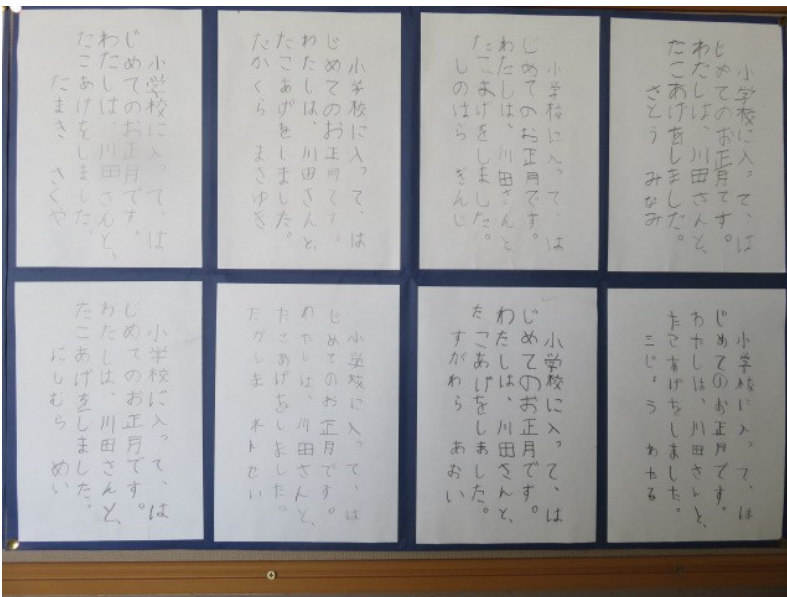 小学校に入って、は
じめてのお正月です。
わたしは、川田さんと、
たこあげをしました。
さとう みなみ
小学校に入って、は
じめてのお正月です。
わたしは、川田さんと
たこあげをしました。
しのはら ぎんじ
小学校に入って、は
じめてのお正月です。
わたしは、川田さんと、
たこあげをしました。
たかくら まさゆき
小学校に入って、は
じめてのお正月です。
わたしは、川田さんと、
たこあげをしました。
たまき さくや
小学校に入って、は
じめてのお正月です。
わたしは、川田さんと、
たこあげをしました。
三じょう わたる
小学校に入って、は
じめてのお正月です。
わたしは、川田さんと、
たこあげをしました。
すがわら あおい
小学校に入って、は
じめてのお正月です。
わたしは、川田さんと、
たこあげをしました。
たかしま
小学校に入って、は
じめてのお正月です。
わたしは、川田さんと、
たこあげをしました。
にしむら めい